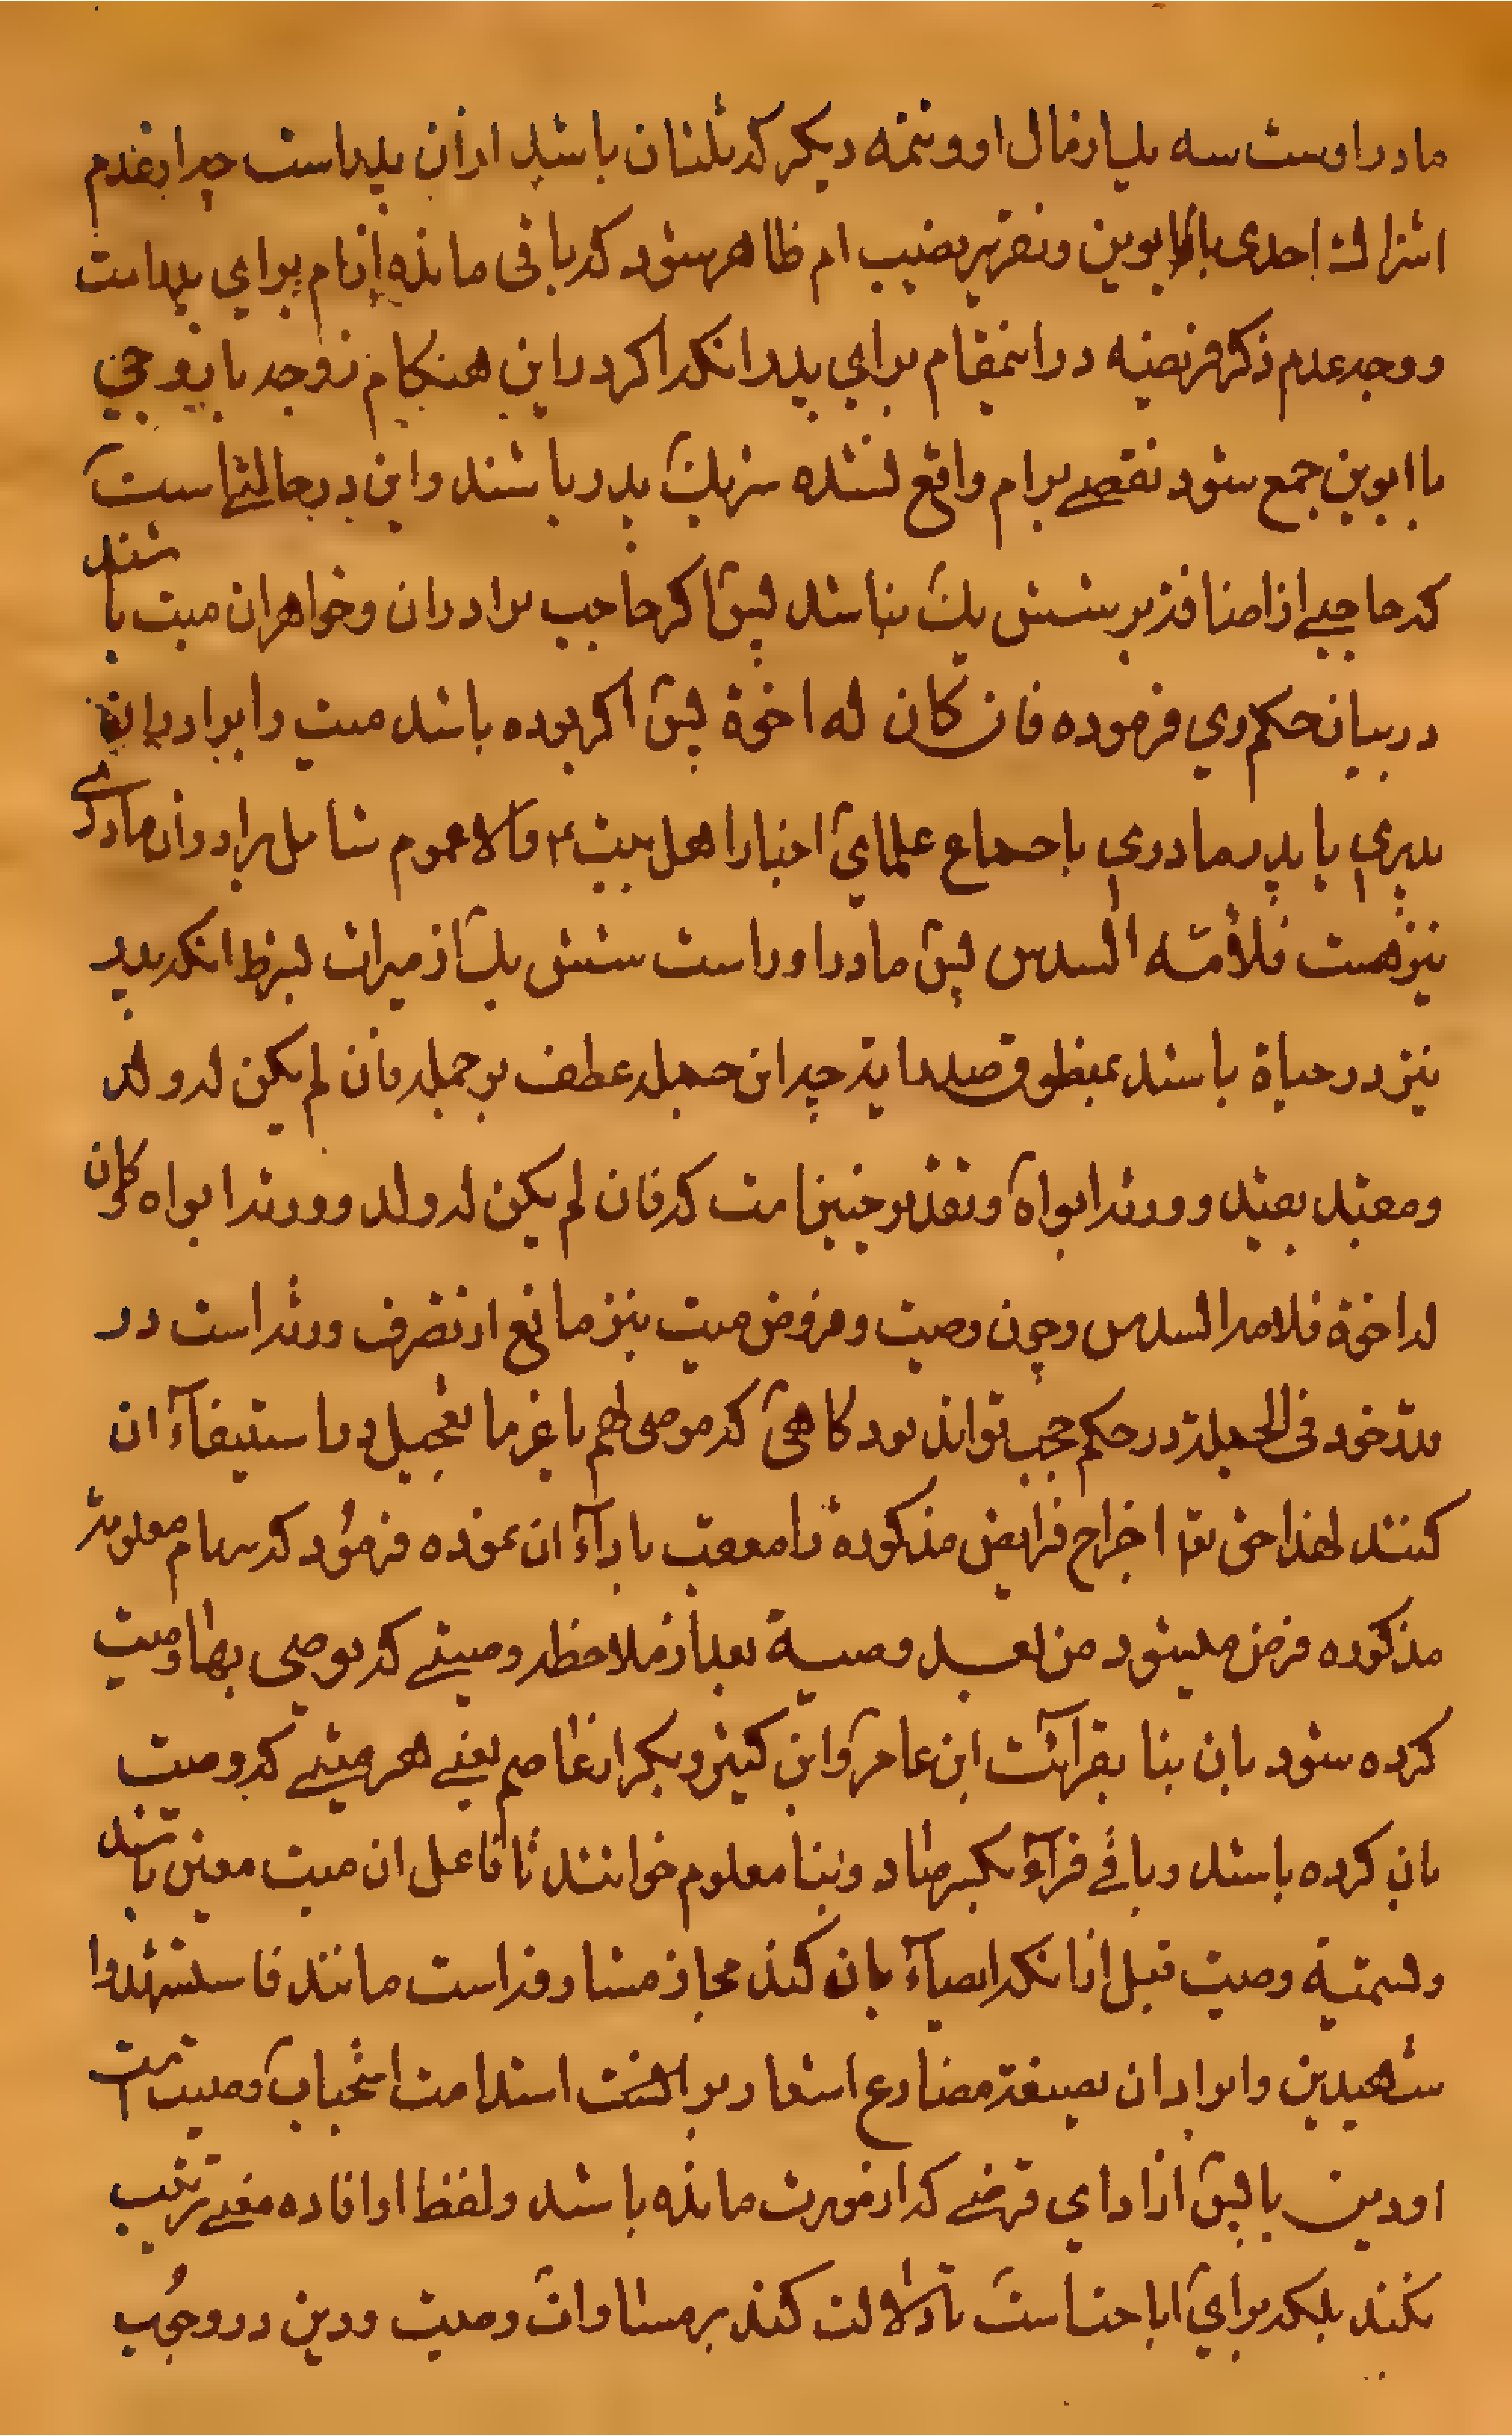 مادر اوست سه یک از مال او و تتمه دیگر که ثلثان باشد از آن پدر است چه از تقدم
اشتراک احدی با ابوین و تقریر نصیب ام ظاهر شود که باقی مانده از ام برای پدر است
و وجه عدم ذکر فریضه در اینمقام برای پدر انکه اگر در این هنگام زوجه یا زوجی
با ابوین جمع شود نقصی بر ام واقع نشده شریک پدر باشند و این در حالتی است
که حاجبی از اضافه بر شش یک نباشد پس اگر حاجب برادران و خواهران میت باشند
در بیان حکم وی فرموده فان کان له اخوة پس اگر بوده باشد میت را برادران
پدری یا پدر مادری باجماع علمای اخبار اهل بیت ع والا عموم شامل برادران مادری
نیز هست فلامّه السدس پس مادر او راست شش یک از میراث بشرط انکه پدر
نیز در حیاة باشد بمنطوق صدر ایه چه این جمله عطف بر جمله فان لم یکن له ولد
و مقید بقید و ورثه ابواه و تقدیر چنین است که فان لم یکن له ولد و ورثه ابواه و کان
له اخوة فلامه السدس و چون وصیت و قروض میت نیز مانع از تصرف ورثه است در
خود فی الجمله در حکم حجب تواند بود کاهی که موصی لهم یا غرما تعجیل در استیفاء ان
کنند لهذا حق تع اخراج فرایض مذکوره را معقب باداء ان نموده فرمود که سهام معلومه
مذکوره فرض میشود من بعد وصیة بعد از ملاحظه وصیتی که یوصی بها وصیت
کرده شود بان بنا بقرائت ابن عامر و ابن کثیر و بکر از عاصم یعنی هر میتی که وصیت
بان کرده باشد و باقی قرآء بکسر صاد و بنا معلوم خوانند تا فاعل ان میت معین باشد
و تسمیة وصیت قبل از انکه ایصاء بان کند مجاز مشارفه است مانند فاستشهدوا
شهیدین و ایراد ان بصیغه مضارع اشعار بر استدامت استحباب وصیت است
او دین یا پس از ادای قرضی که از مورث مانده باشد و لفظ او افاده معنی ترتیب
نکند بلکه برای اباحت است تا دلالت کند بر مساوات وصیت و دین در وجوب